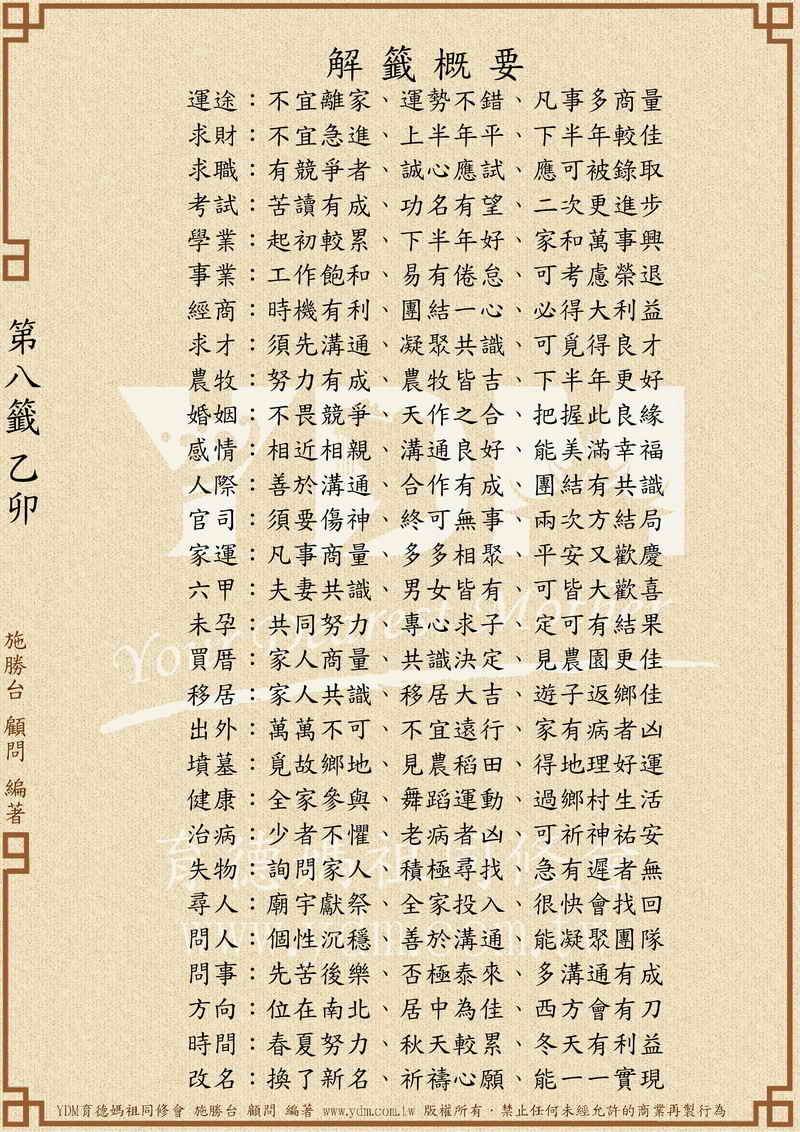 解籤概要
運途：不宜離家、運勢不錯、凡事多商量
求財：不宜急進、上半年平、下半年較佳
求職：有競爭者、誠心應試、應可被錄取
考試：苦讀有成、功名有望、二次更進步
學業：起初較累、下半年好、家和萬事興
事業：工作飽和、易有倦怠、可考慮榮退
經商：時機有利、團結一心、必得大利益
求才：須先溝通、凝聚共識、可覓得良才
農牧：努力有成、農牧皆吉、下半年更好
婚姻：不畏競爭、天作之合、把握此良緣
感情：相近相親、溝通良好、能美滿幸福
人際：善於溝通、合作有成、團結有共識
官司：須要傷神、終可無事、兩次方結局
家運：凡事商量、多多相聚、平安又歡慶
六甲：夫妻共識、男女皆有、可皆大歡喜
未孕：共同努力、專心求子、定可有結果
買厝：家人商量、共識決定、見農園更佳
移居：家人共識、移居大吉、遊子返鄉佳
出外：萬萬不可、不宜遠行、家有病者凶
墳墓：覓故鄉地、見農稻田、得地理好運
健康：全家參與、舞蹈運動、過鄉村生活
治病：少者不懼、老病者凶、可祈神祐安
失物：詢問家人、積極尋找、急有遲者無
尋人：廟宇獻祭、全家投入、很快會找回
問人：個性沉穩、善於溝通、能凝聚團隊
問事：先苦後樂、否極泰來、多溝通有成
方向：位在南北、居中為佳、西方會有刀
時間：春夏努力、秋天較累、冬天有利益
改名：換了新名、祈禱心願、能一一實現
第八籤 乙卯
施勝台 顧問 編著
YDM
Your Dearest Mother
育德媽祖同修會
www.ydm.com.tw
YDM育德媽祖同修會 施勝台 顧問 編著 www.ydm.com.tw 版權所有，禁止任何未經允許的商業再製行為